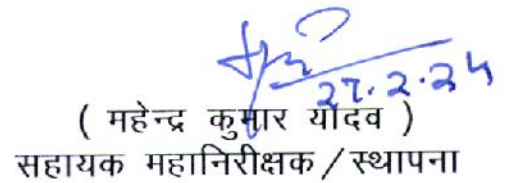 27.2.24
( महेन्द्र कुमार यादव )
सहायक महानिरीक्षक/स्थापना